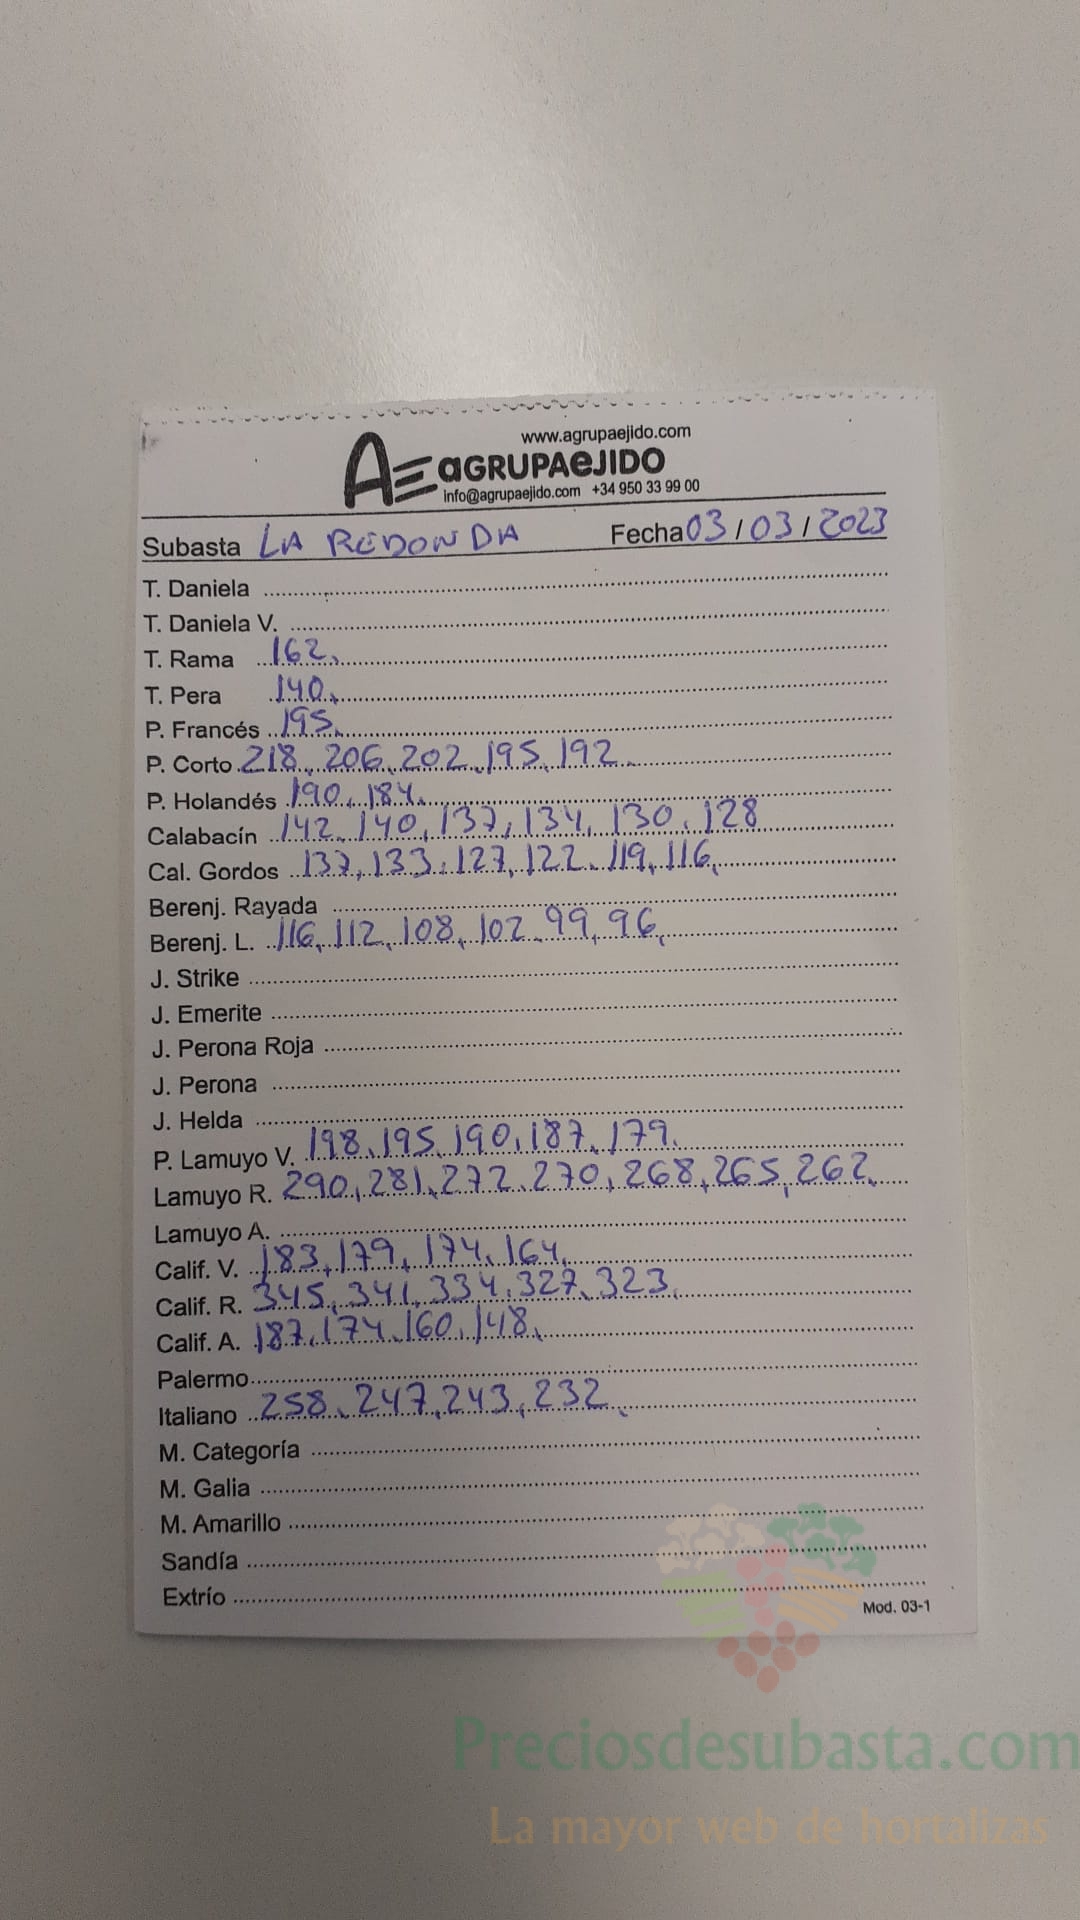 www.agrupaejido.com
AE aGRUPAeJIDO
info@agrupaejido.com +34 950 33 99 00
Subasta LA REDONDA Fecha 03/03/2023
T. Daniela
T. Daniela V.
T. Rama 162,
T. Pera 140,
P. Francés 195,
P. Corto 218, 206, 202, 195, 192
P. Holandés 190, 184,
Calabacín 142, 140, 137, 134, 130, 128
Cal. Gordos 137, 133, 127, 122, 119, 116,
Berenj. Rayada
Berenj. L. 116, 112, 108, 102, 99, 96,
J. Strike
J. Emerite
J. Perona Roja
J. Perona
J. Helda
P. Lamuyo V. 198, 195, 190, 187, 179,
Lamuyo R. 290, 281, 272, 270, 268, 265, 262,
Lamuyo A.
Calif. V. 183, 179, 174, 164,
Calif. R. 345, 341, 334, 327, 323,
Calif. A. 187, 174, 160, 148,
Palermo
Italiano 258, 247, 243, 232,
M. Categoría
M. Galia
M. Amarillo
Sandía
Extrío
Mod. 03-1
Preciosdesubasta.com
La mayor web de hortalizas